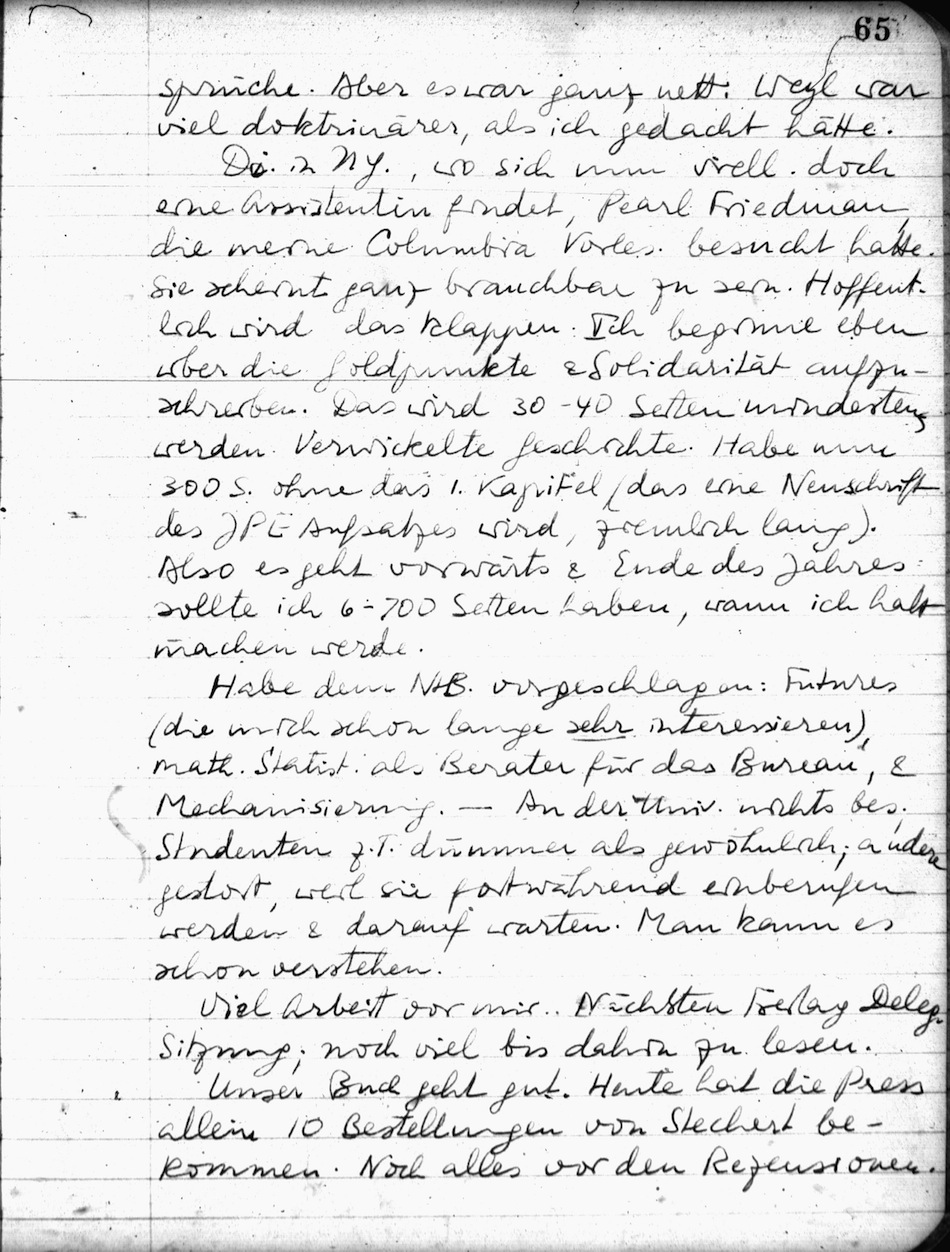 65
sprüche. Aber es war ganz nett. Weyl war
viel doktrinärer, als ich gedacht hätte.
Di. in NY., wo sich nun viell. doch
eine Assistentin findet, Pearl Friedman,
die meine Columbia Vorles. besucht hatte.
Sie scheint ganz brauchbar zu sein. Hoffent-
lich wird das klappen. Ich beginne eben
über die Goldpunkte & Solidarität aufzu-
schreiben. Das wird 30-40 Seiten mindestens
werden. Verwickelte Geschichte. Habe nun
300 S. ohne das 1. Kapitel (das eine Neuschrift
des JPE Aufsatzes wird, ziemlich lang).
Also es geht vorwärts & Ende des Jahres
sollte ich 6-700 Seiten haben, wann ich halt
machen werde.
Habe dem NB. vorgeschlagen: Futures
(die mich schon lange sehr interessieren),
math. Statist. als Berater für das Bureau, &
Mechanisierung. — An der Univ. nichts bes.
Studenten z.T. dümmer als gewöhnlich; andere
gestört, weil sie fortwährend einberufen
werden & darauf warten. Man kann es
schon verstehen.
Viel Arbeit vor mir.. Nächsten Freitag Deleg.
Sitzung; noch viel bis dahin zu lesen.
Unser Buch geht gut. Heute hat die Press
allein 10 Bestellungen von Stechert be-
kommen. Noch alles vor den Rezensionen.